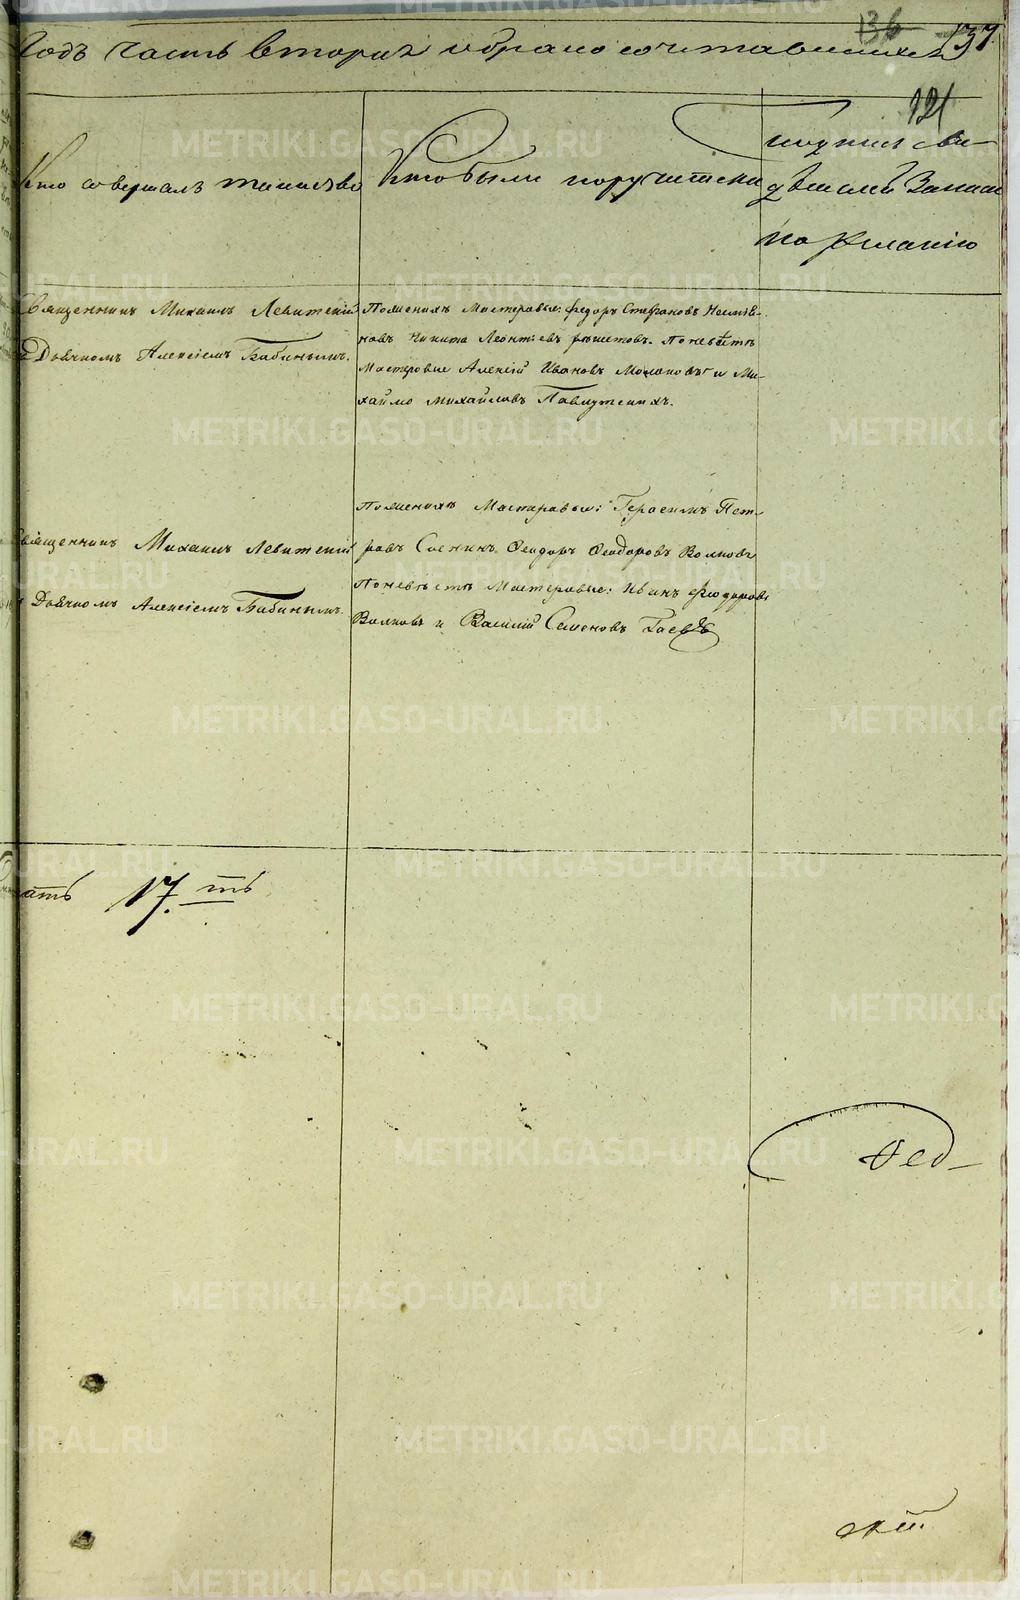 36 137
Годъ часть вторая о бракосочетавшихся
121
Кто совершалъ таинство
Кто были поручители
Подпись сви-
дѣтелей Записи
по желанію
Священникъ Михаилъ Левитскій
Дьячкомъ Алексіемъ Бабинымъ.
По женихѣ Мастеровые: Федоръ Стефановъ
новъ Никита Леонтіевъ Рѣшетовъ. По невѣстѣ
Мастеровые Алексій Ивановъ и Ми-
хайло Михайловъ
Священникъ Михаилъ Левитскій
Дьячкомъ Алексіемъ Бабинымъ.
По женихѣ Мастеровые: Герасимъ Пет-
ровъ Ѳеодоръ Ѳеодоровъ Волковъ
По невѣстѣ Мастеровые: Иванъ Феодоровъ
Волковъ и Василій Семеновъ Гаевъ
17. ть
Ѳед-
METRIKI.GASO-URAL.RU